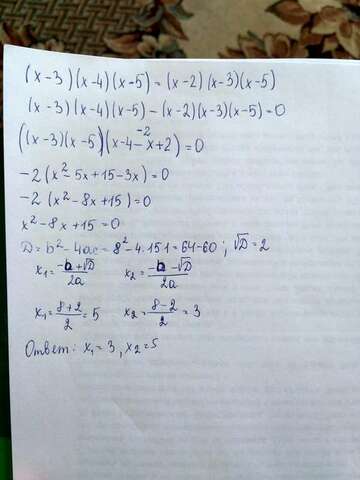 (x-3)(x-4)(x-5)=(x-2)(x-3)(x-5)
(x-3)(x-4)(x-5)-(x-2)(x-3)(x-5)=0
-2
((x-3)(x-5))(x-4-x+2)=0
-2(x²-5x+15-3x)=0
-2(x²-8x+15)=0
x²-8x+15=0
D=b²-4ac=8²-4·15·1=64-60; √D=2
x₁=-b+√D/2a x₂=-b-√D/2a
x₁=8+2/2=5 x₂=8-2/2=3
Ответ: x₁=3, x₂=5